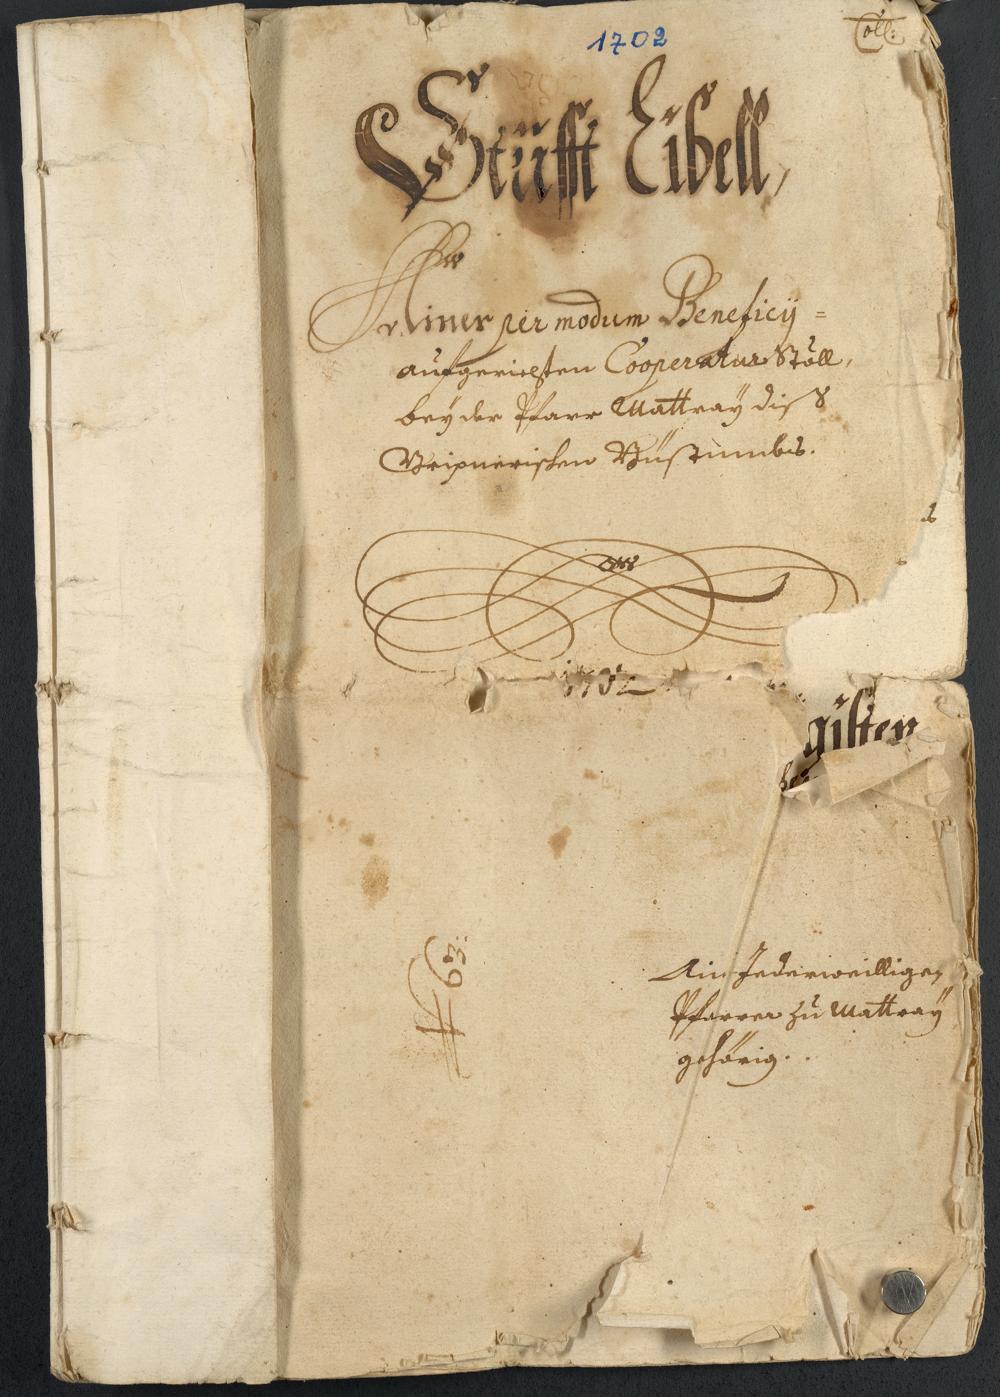 1702
Coll:
Stüfft Libell,
Ainer per modum Beneficij =
aufgerichten Cooperatur Stöll,
bey der Pfarr Mattray diß
Brixnerischen Büstumbs.
1702
gisten
№ 63.
Ain Jederweilligen
Pfarrer zu Mattray
gehörig.